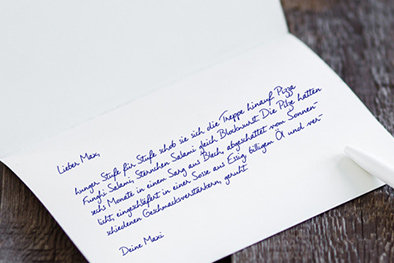 Lieber Max,
hunger Stufe für Stufe schob sie sich die Treppe hinauf. Pizza
Funghi Salami, Sternchen Salami gleich Blockwurst. Die Pilze hatten
sechs Monate in einem Sarg aus Blech, abgeschottet vom Sonnen-
licht, eingepfercht in einer Sosse aus Essig billigem Öl und ver-
schiedenen Geschmacksverstärkern, geruht.
Deine Maxi